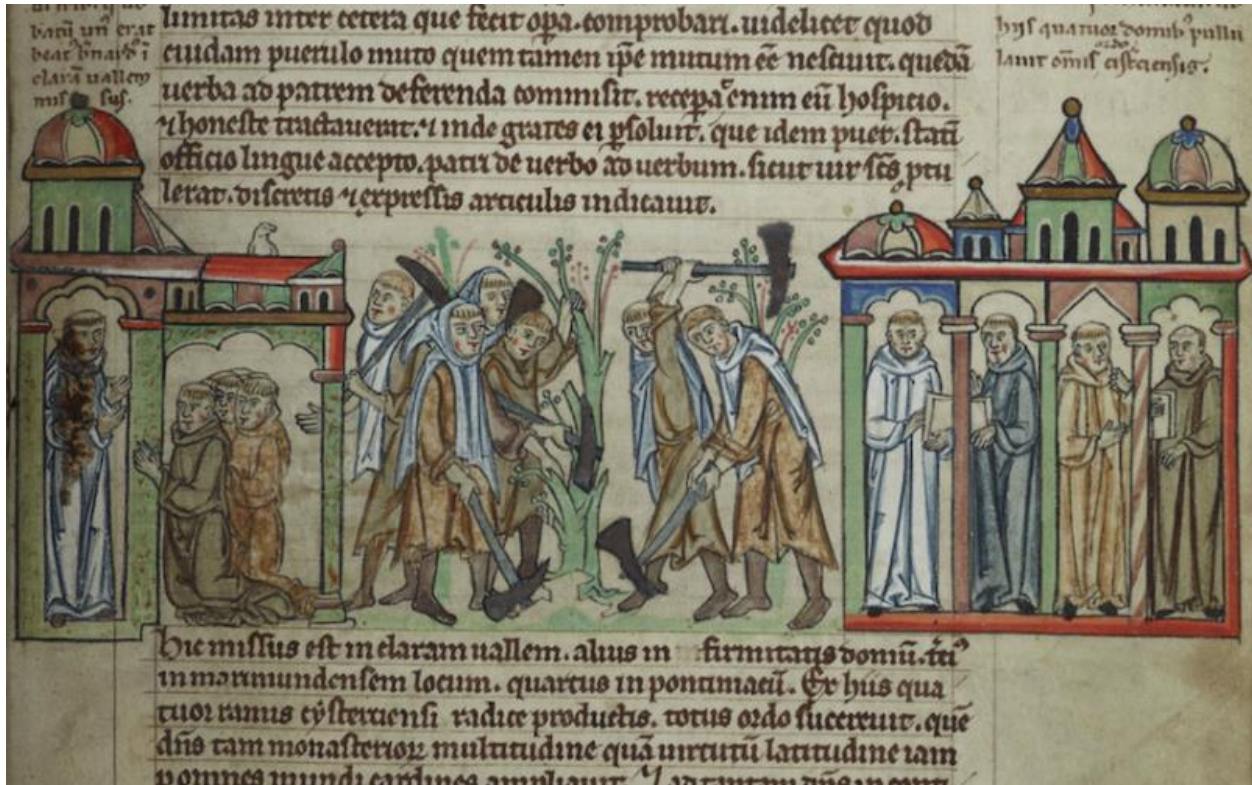 batū un' erat
beat' b'nard' ī
clarā uallem
mis sus.
limitas inter cetera que fecit opa. comprobari. uidelicet quod
cuidam puerulo muto quem tamen ipe mutum eē nesciuit. quedā
uerba ad patrem deferenda commisit. recepat enim eū hospicio.
⁊ honeste tractauerat. ⁊ inde grates ei psoluit. que idem puer. statī
officio lingue accepto. patri de uerbo ad uerbum. sicut uir scs ptu
lerat. discretis ⁊ expressis articulis indicauit.
hijs quatuor domib' pullu
lauit om̄is ordo cisterciensis.
Hic missus est in claram uallem. alius in firmitatis domū. tci'
in morimundensem locum. quartus in pontiniacū. Ex hiis qua
tuor ramis cysterciensi radice productis. totus ordo succreuit. quē
dn̄s tam monasterioꝝ multitudine quā uirtutū latitudine iam
omnes mundi cardines ampliauit.